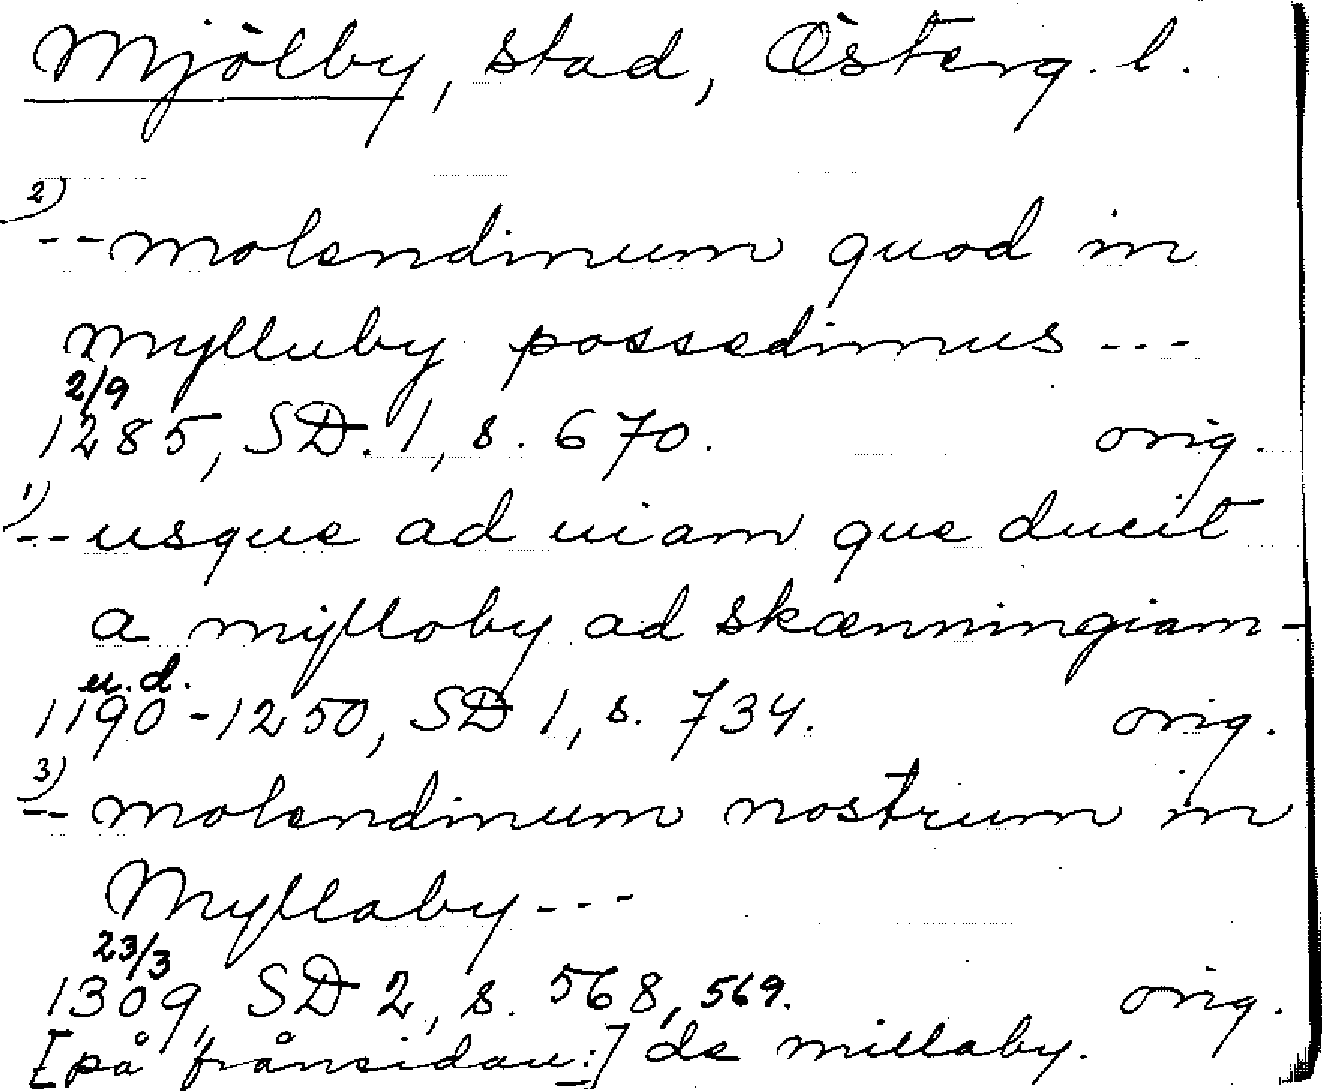 Mjölby, stad, Österg. l.
2)
-- molendinum quod in
mylluby possedimus ---
2/9
1285, SD. 1, s. 670. orig.
1)
-- usque ad uiam que ducit
a mylloby ad skænningiam -
u.d.
1190-1250, SD 1, s. 734. orig.
3)
-- molendinum nostrum in
Myllaby ---
23/3
1309, SD 2, s. 568, 569. orig.
[på frånsidan:] de millaby.